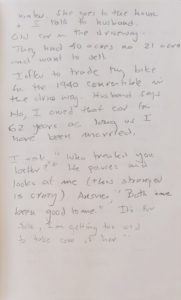 She goes to their house
+ I talk to husband.
Old car in the driveway.
They had 40 acres no 21 acres
and want to sell
I offer to trade my bike
for the 1940 convertible in
the driveway. Husband says
No, I owned that car for
62 years as long as I
have been married.
I ask "who treated you
better?" He pauses and
looks at me (this stranger
is crazy) Answer, "Both have
been good to me." It's for
sale, I'm getting too old
to take care of her"